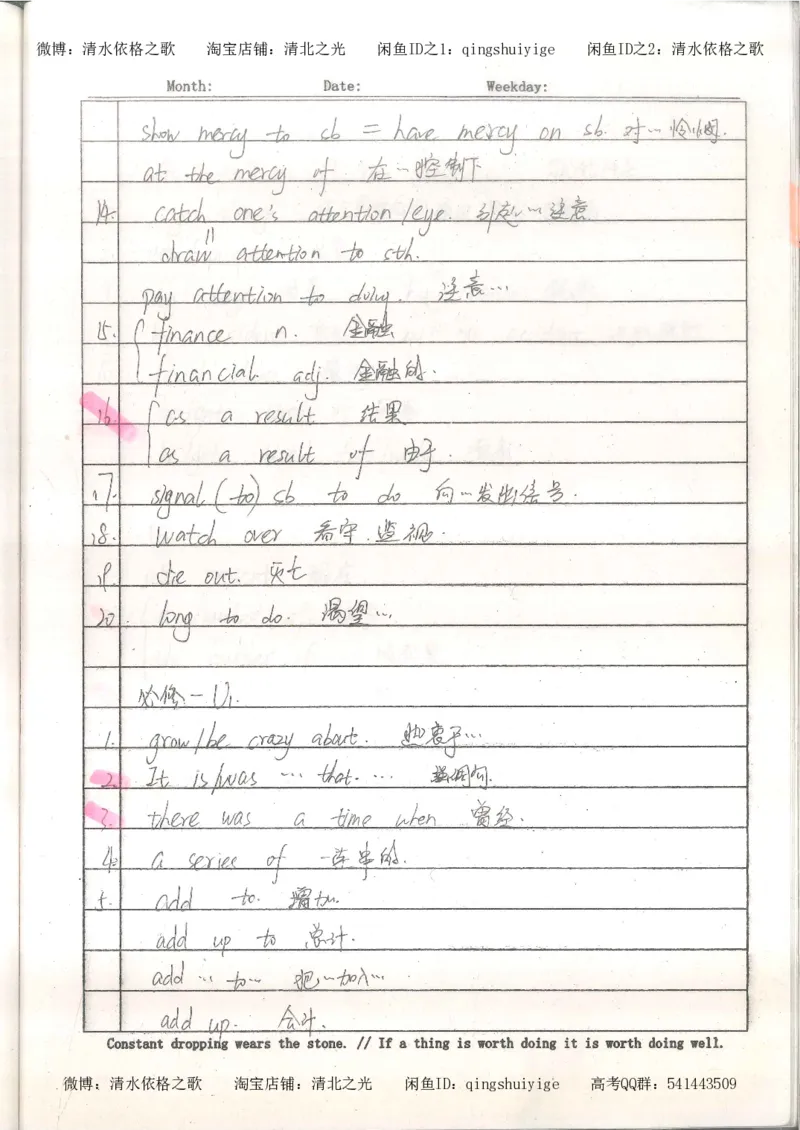 微博：清水依格之歌 淘宝店铺：清北之光 闲鱼ID之1：qingshuiyige 闲鱼ID之2：清水依格之歌
Month: Date: Weekday:
show mercy to sb = have mercy on sb. 对…怜悯.
at the mercy of 在…控制下
14. catch one's attention/eye. 引起…注意
draw attention to sth.
pay attention to doing. 注意…
15. finance n. 金融
financial adj. 金融的.
16. as a result 结果
as a result of 由于.
17. signal (to) sb to do 向…发出信号.
18. watch over 看守.监视.
19. die out. 灭亡
20. long to do. 渴望…
必修一 U1.
1. grow/be crazy about. 热衷于…
2. It is/was … that. … 强调句.
3. there was a time when 曾经.
4. a series of 一连串的.
5. add to. 增加.
add up to 总计.
add … to… 把…加入…
add up. 合计.
Constant dropping wears the stone. // If a thing is worth doing it is worth doing well.
微博：清水依格之歌 淘宝店铺：清北之光 闲鱼ID：qingshuiyige 高考QQ群：541443509